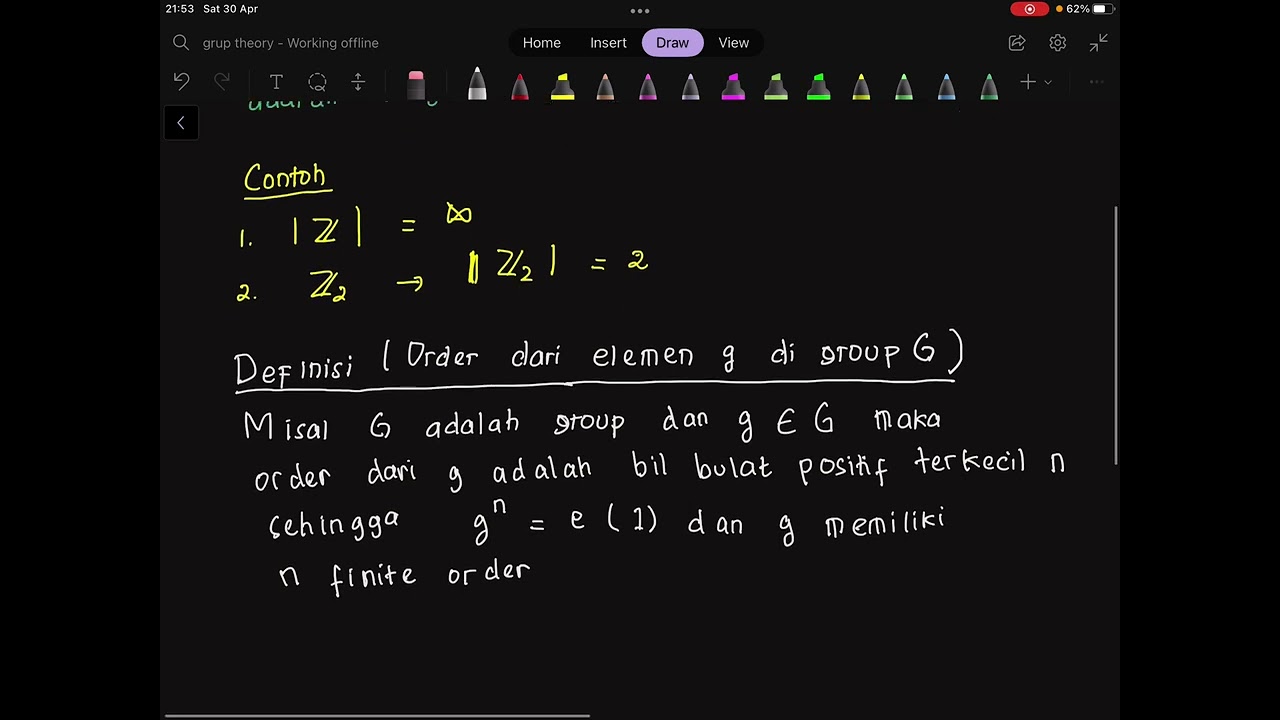 21:53 Sat 30 Apr
62%
grup theory - Working offline
Home Insert Draw View
Contoh
1. |ℤ| = ∞
2. ℤ₂ → |ℤ₂| = 2
Definisi (Order dari elemen g di group G)
Misal G adalah group dan g ∈ G maka
order dari g adalah bil bulat positif terkecil n
sehingga gⁿ = e (1) dan g memiliki
n finite order